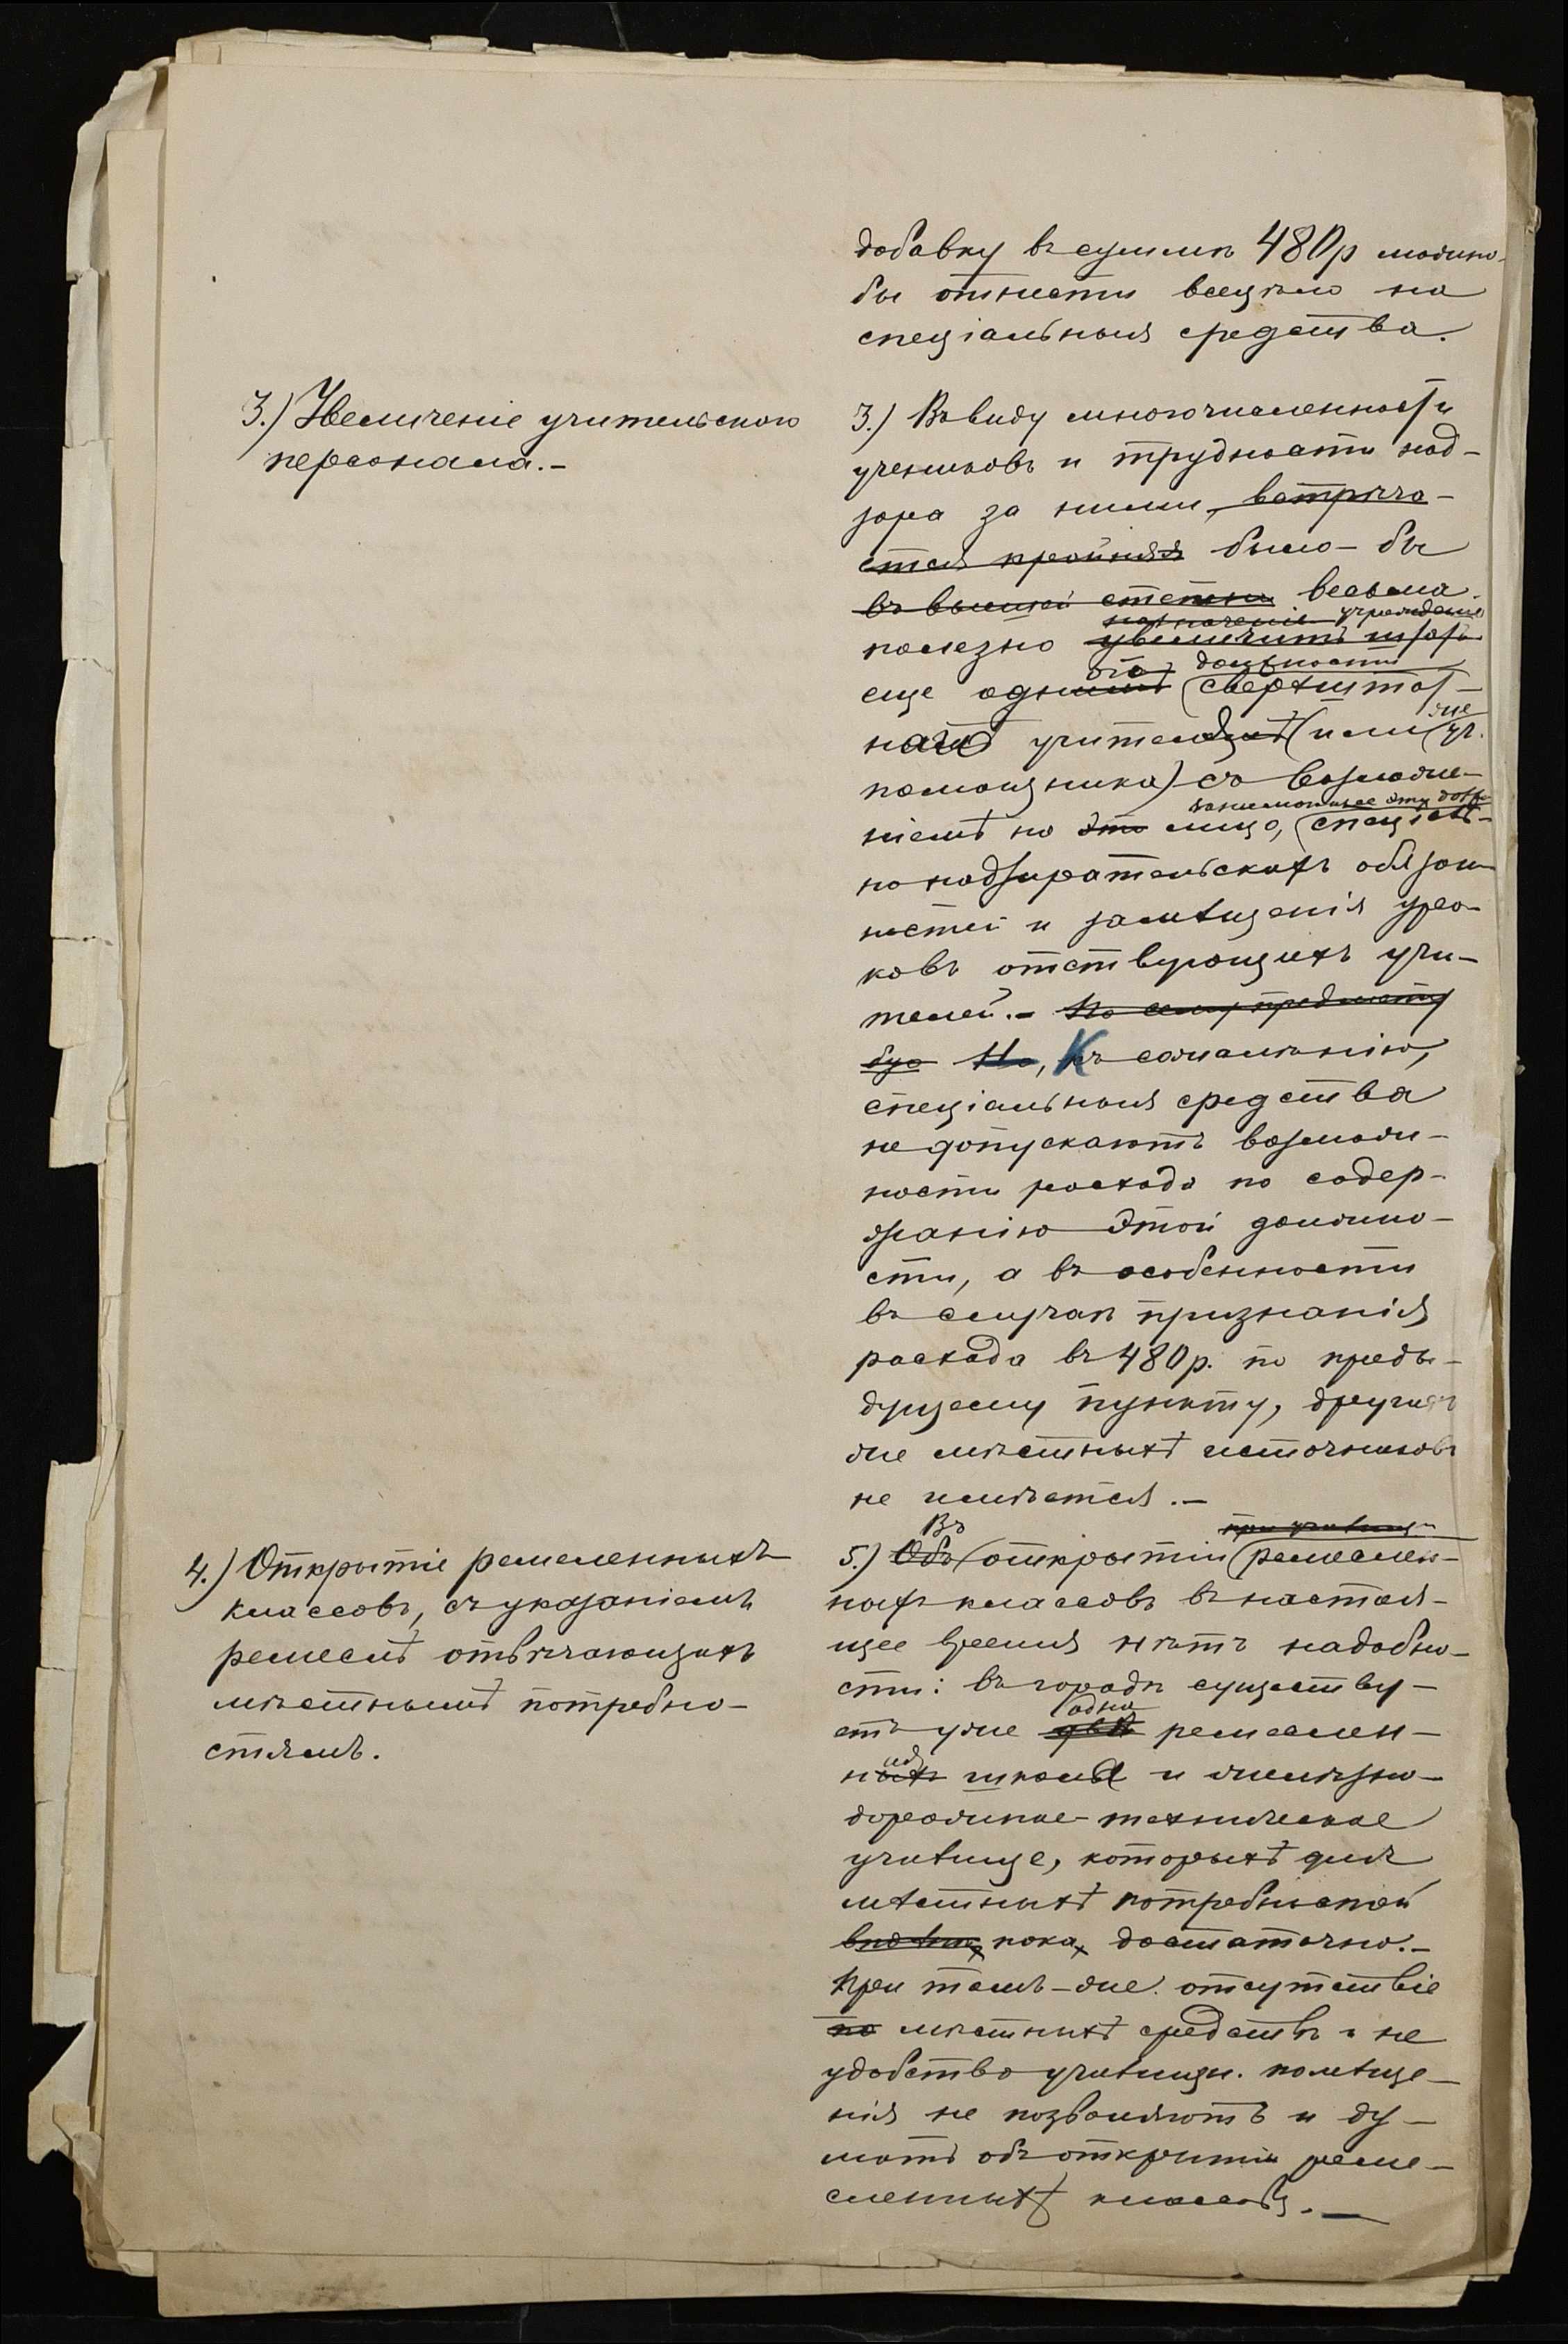 добавку въ суммѣ 480р можно-
бы отнести всецѣло на
спеціальныя средства.
3.) Увеличеніе учительскаго
персонала.-
3.) Въ виду многочисленности
учениковъ и трудности над-
зора за ними, встрѣча-
ется крайняя было-бы
въ высшей степени весьма
назначеніе учрежденіе
полезно увеличить штатъ
ой должности
еще однимъ сверхштат-
же
наго учителя (или уч.
помощника) съ возложе-
занимающее эту
ніемъ на это лицо, спеціаль-
но надзирательскихъ обязан-
ностей и замѣщенія уро-
ковъ отствующихъ учи-
телей.- По сему предмету
Но, Къ сожалѣнію,
спеціальныя средства
не допускаютъ возмож-
ности расхода по содер-
жанію этой должно-
сти, а въ особенности
въ случаѣ признанія
расхода въ 480р. по преды-
дущему пункту, другихъ
же мѣстныхъ источниковъ
не имѣется.-
4.) Открытіе ремесленныхъ
классовъ, съ указаніемъ
ремеслъ отвѣчающихъ
мѣстнымъ потребно-
стямъ.
Въ при училищѣ
5.) Объ открытіи ремеслен-
ныхъ классовъ въ настоя-
щее время нѣтъ надобно-
сти: въ городѣ существу-
одна
етъ уже двѣ ремеслен-
ная
ныхъ школы и желѣзно-
дорожное-техническое
училище, которыхъ для
мѣстныхъ потребностей
пока, достаточно.-
При томъ-же отсутствіе
по мѣстныхъ средствъ и не
удобство училищн. помѣще-
нія не позволяютъ и ду-
мать объ открытіи реме-
сленныхъ классовъ.-